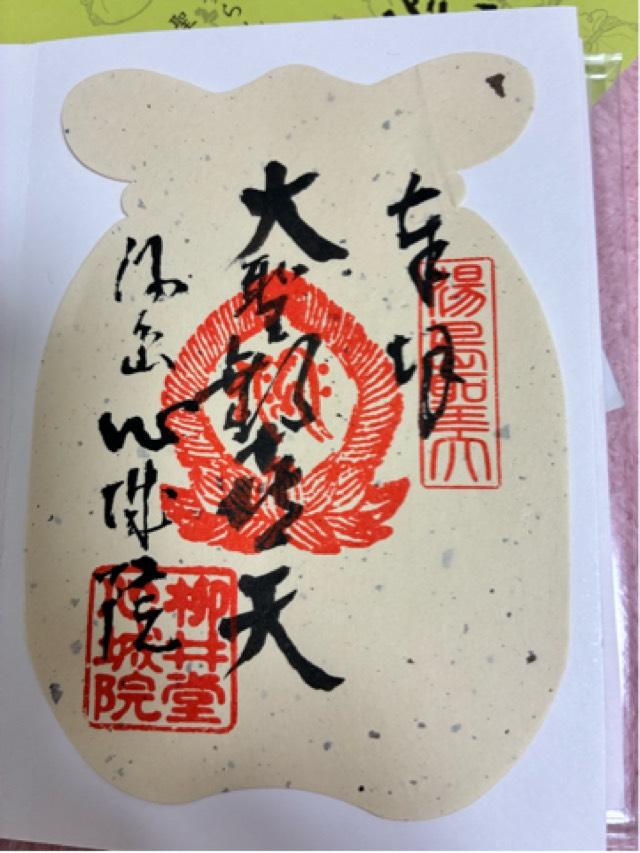 湯島聖天
奉拝
大聖歓喜天
湯島心城院
柳井堂
心城院